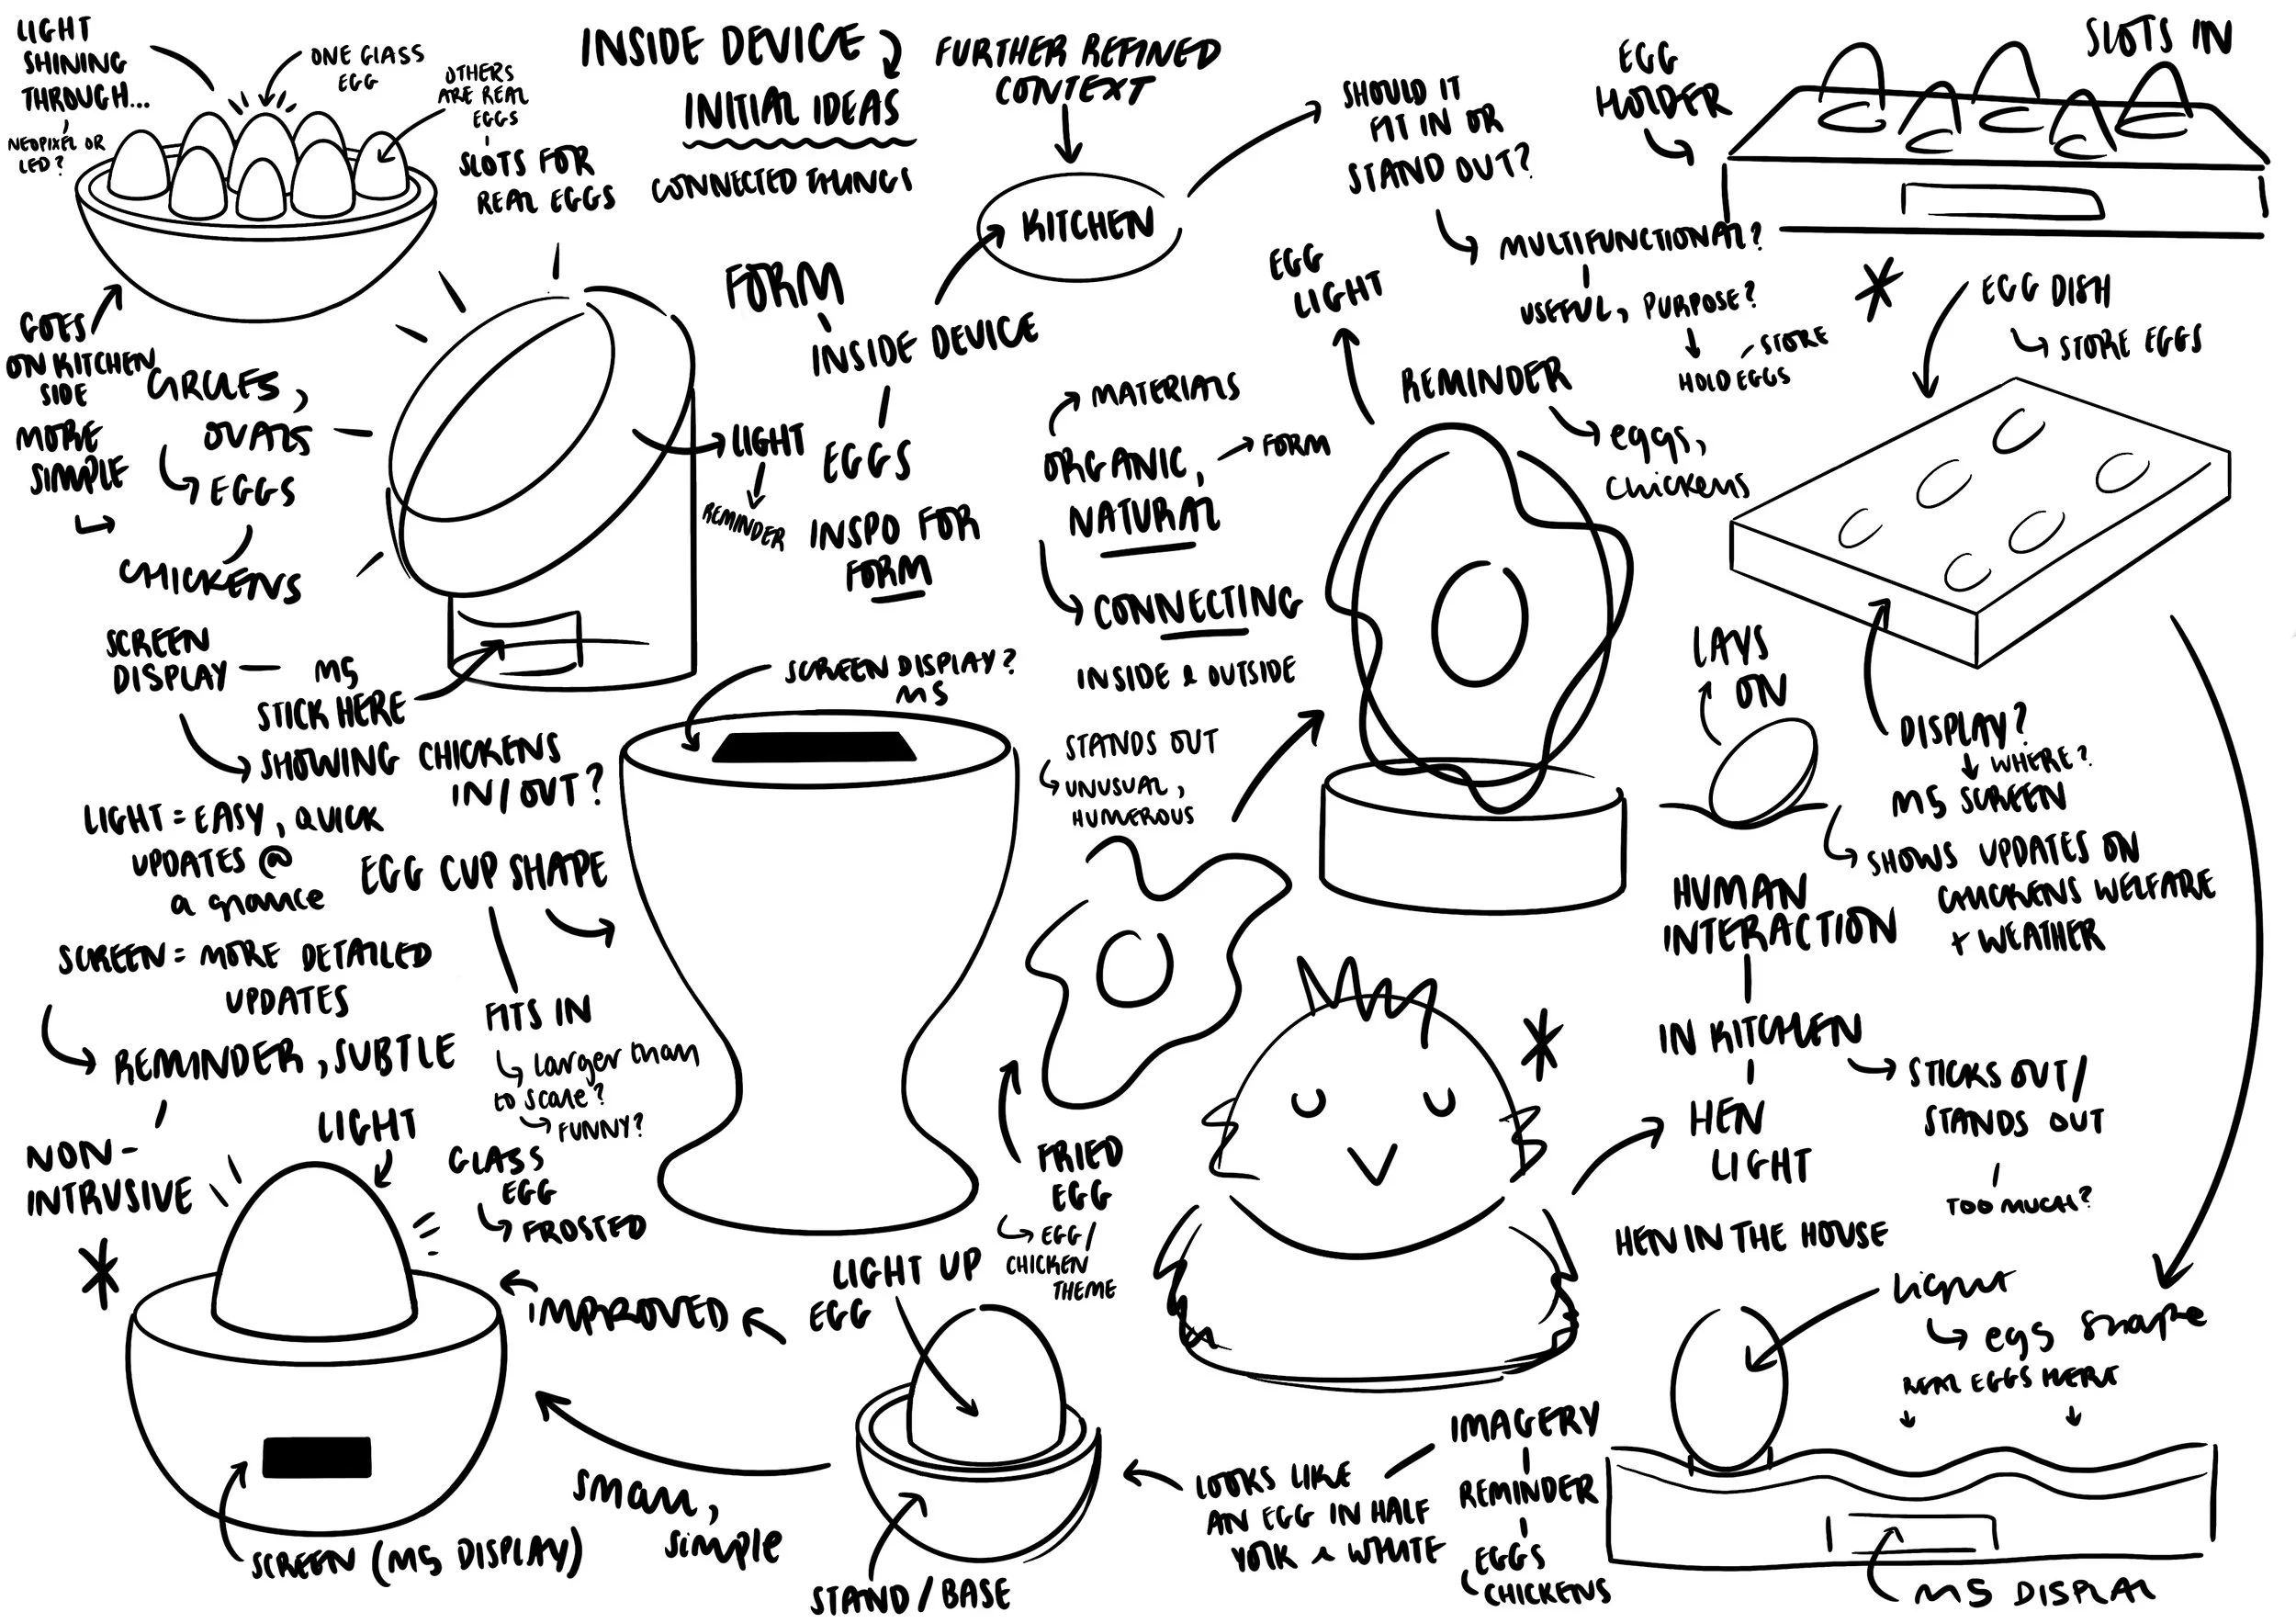 LIGHT
SHINING
THROUGH...
NEOPIXEL OR
LED?
ONE GLASS
EGG
OTHERS
ARE REAL
EGGS
SLOTS FOR
REAL EGGS
INSIDE DEVICE
INITIAL IDEAS
CONNECTED THINGS
FURTHER REFINED
CONTEXT
KITCHEN
SHOULD IT
FIT IN OR
STAND OUT?
MULTIFUNCTIONAL?
USEFUL, PURPOSE?
HOLD EGGS
STORE
EGG
HOLDER
SLOTS IN
EGG DISH
STORE EGGS
GOES
ON KITCHEN
SIDE
MORE
SIMPLE
CIRCLES,
OVALS
EGGS
CHICKENS
FORM
INSIDE DEVICE
EGGS
INSPO FOR
FORM
LIGHT
REMINDER
MATERIALS
ORGANIC,
NATURAL
FORM
CONNECTING
INSIDE & OUTSIDE
STANDS OUT
UNUSUAL,
HUMEROUS
EGG
LIGHT
REMINDER
eggs,
chickens
SCREEN
DISPLAY
M5
STICK HERE
SHOWING CHICKENS
IN/OUT?
LIGHT = EASY, QUICK
UPDATES @
a glance
SCREEN = MORE DETAILED
UPDATES
REMINDER, SUBTLE
NON-
INTRUSIVE
SCREEN DISPLAY?
M5
EGG CUP SHAPE
FITS IN
larger than
to scale?
FUNNY?
LAYS
ON
DISPLAY?
WHERE?
M5 SCREEN
SHOWS UPDATES ON
CHICKENS WELFARE
+ WEATHER
HUMAN
INTERACTION
IN KITCHEN
STICKS OUT/
STANDS OUT
TOO MUCH?
HEN
LIGHT
HEN IN THE HOUSE
FRIED
EGG
EGG/
CHICKEN
THEME
LIGHT
GLASS
EGG
FROSTED
IMPROVED
LIGHT UP
EGG
SCREEN (M5 DISPLAY)
small,
simple
STAND/BASE
LOOKS LIKE
AN EGG IN HALF
YOLK & WHITE
IMAGERY
REMINDER
EGGS
CHICKENS
light
egg shape
REAL EGGS HERE
M5 DISPLAY